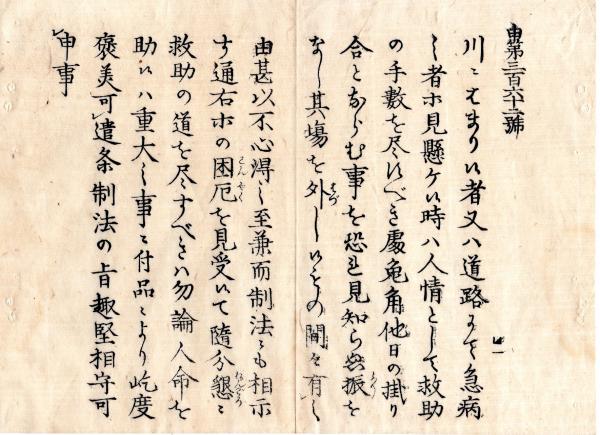 申第三百六十二號
川ニはまり候者又ハ道路ニて急病
之者ホ見懸ケ候時ハ人情として救助
の手數を尽すべき處兎角他日の掛り
合とならむ事を恐れ見知らぬ振を
なし其場を外し候もの間々有之
由甚以不心得之至兼而制法ニも相示
す通右ホの困厄を見受候て隨分懇ニ
救助の道を尽すべきハ勿論人命を
助候ハ重大之事ニ付品ニより屹度
褒美可遣条制法の旨趣堅相守可
申事